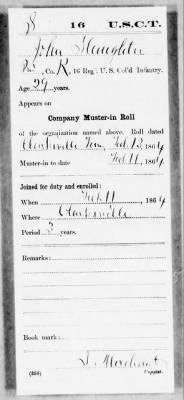 S 16 U.S.C.T.
John Slaughter
Pvt, Co. K, 16 Reg't U.S. Col'd Infantry.
Age 29 years.
Appears on
Company Muster-in Roll
of the organization named above. Roll dated
Clarksville Tenn, Feb 12, 1864
Muster-in to date Feb 11, 1864
Joined for duty and enrolled:
When Feb 11, 1864
Where Clarksville
Period 3 years.
Remarks:
Book mark:
Merchant
(356) Copyist.